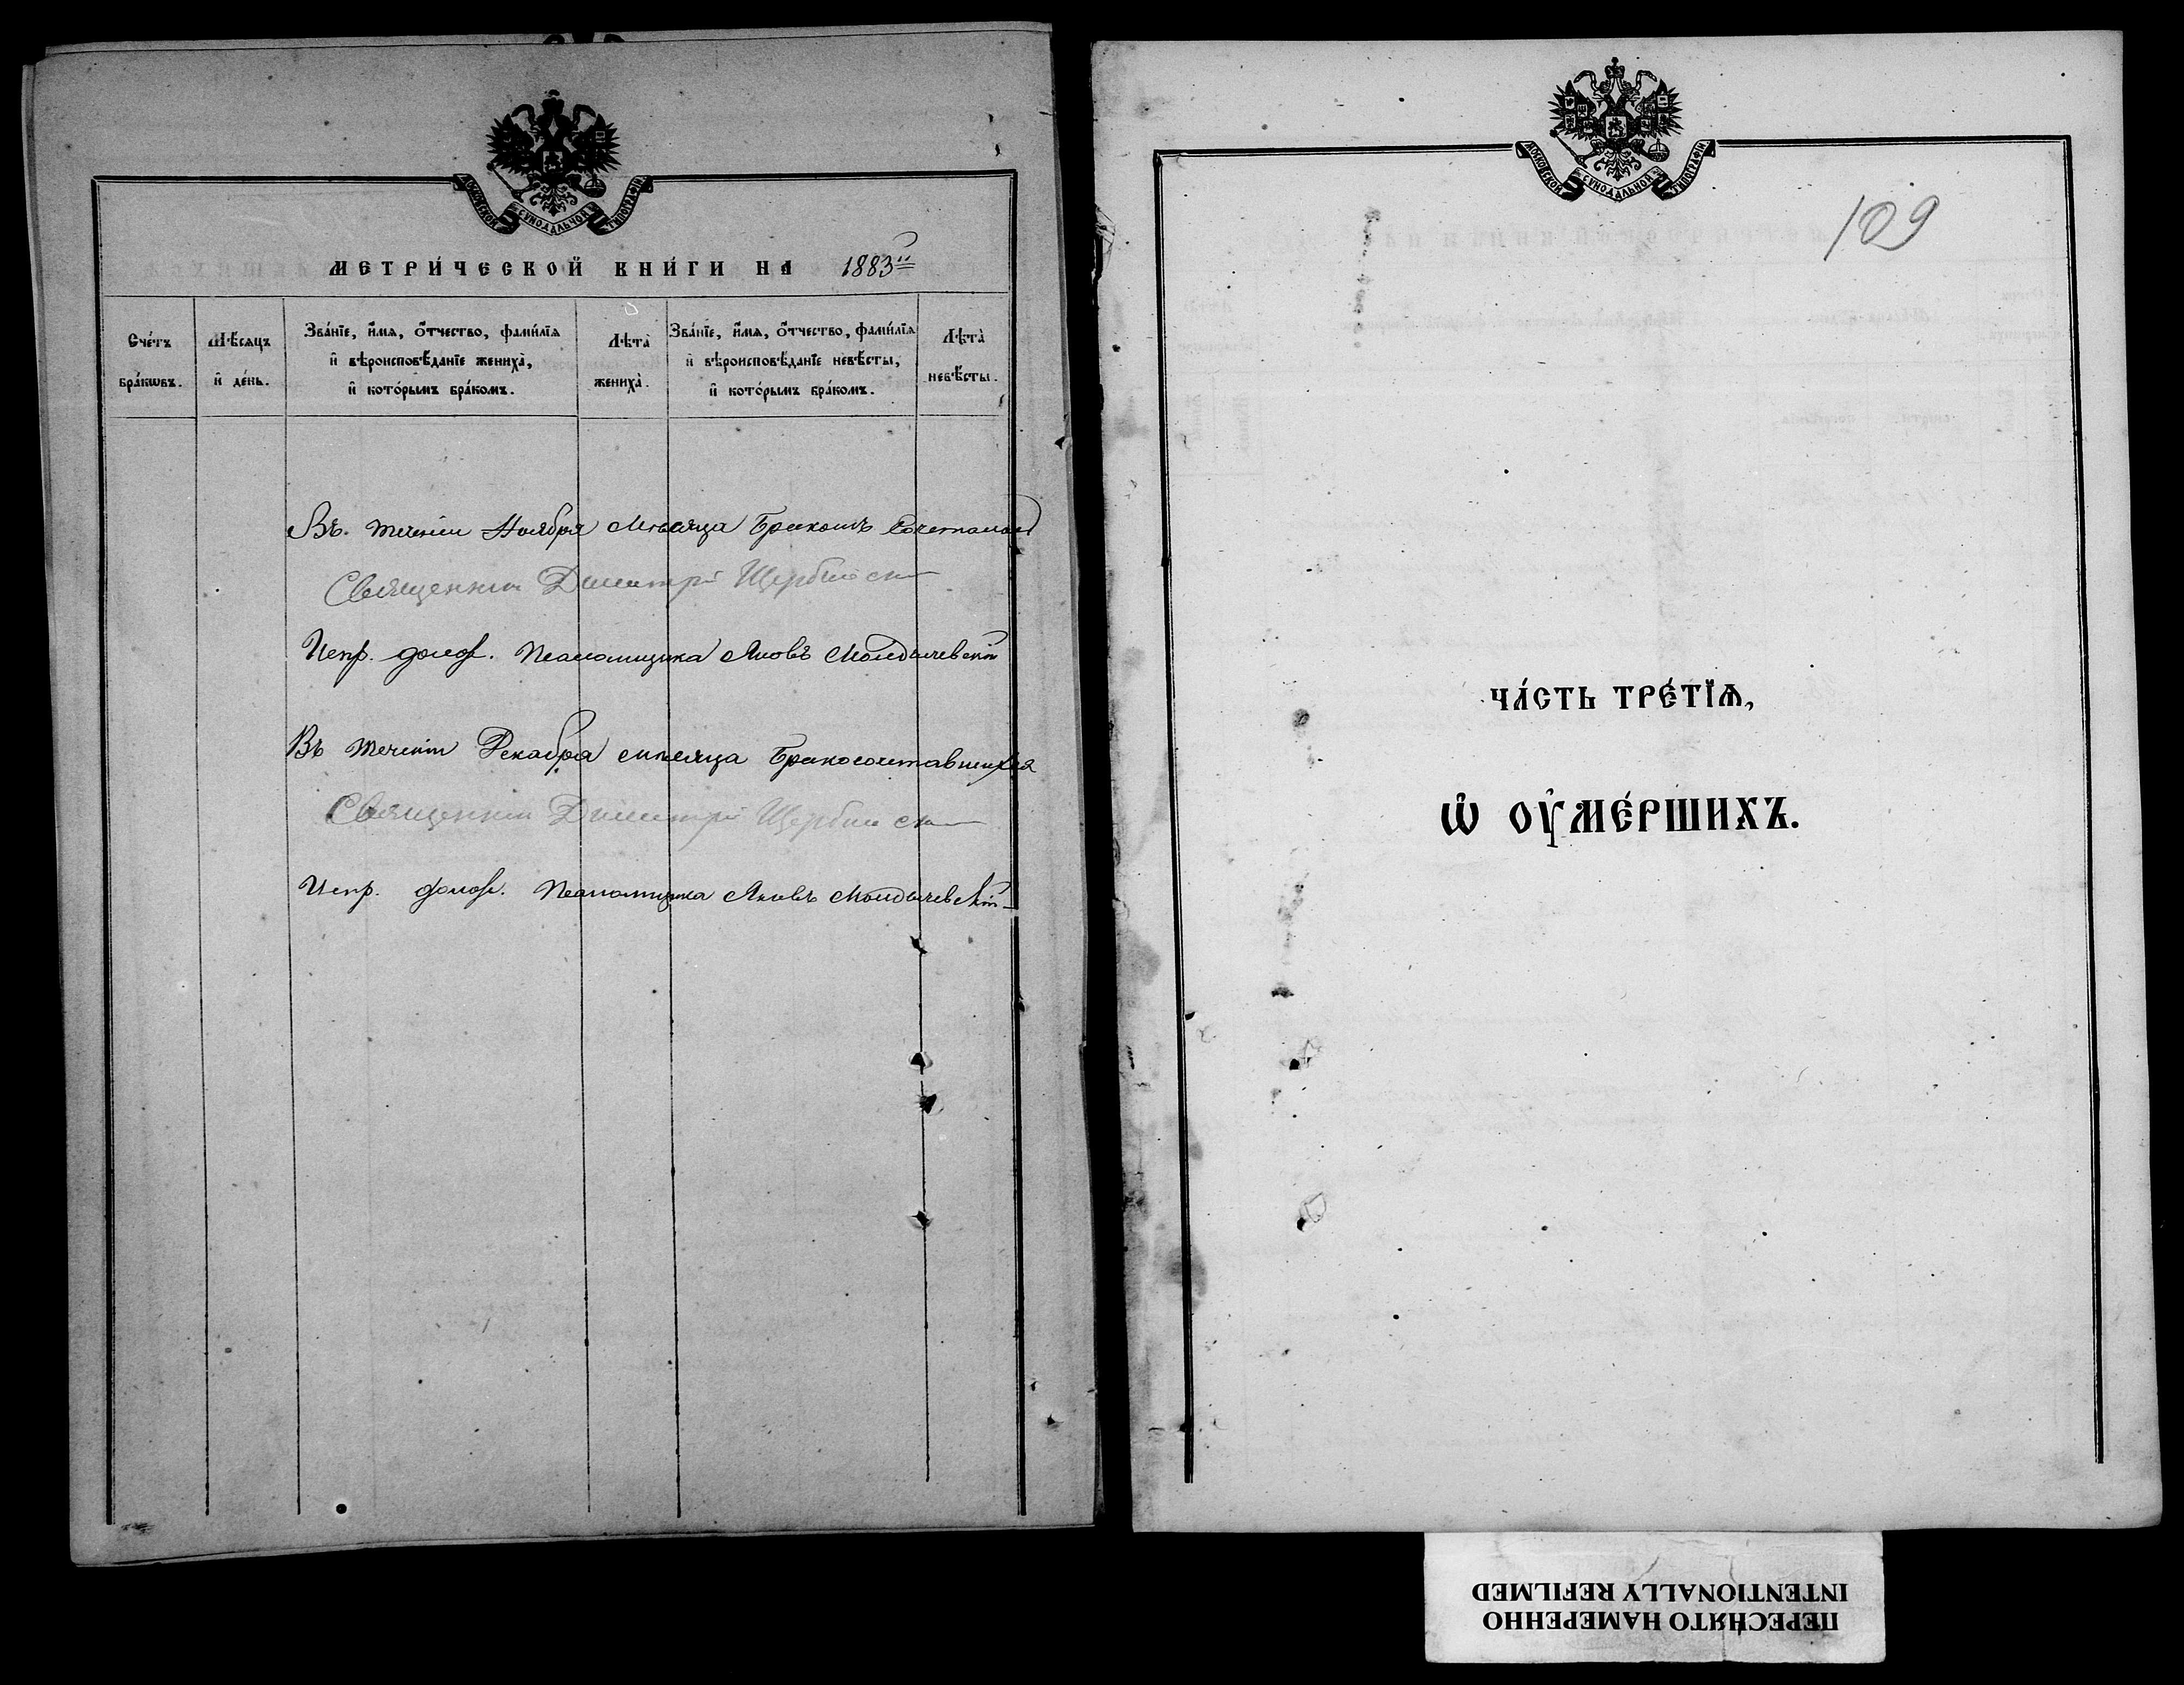 МОСКОВСКОЙ СѴНОДАЛЬНОЙ ТИПОГРАФІИ
МЕТРИ́ЧЕСКОЙ КНИ́ГИ НА 1883й
Сче́тъ бра́кѡвъ.
Мѣ́сяцъ и҆ де́нь.
Зва́нїе, и҆́мѧ, ѻ҆́тчество, фами́лїѧ
и҆ вѣроисповѣ́данїе жениха̀,
и҆ кото́рымъ бра́комъ.
Лѣта̀ жениха̀.
Зва́нїе, и҆́мѧ, ѻ҆́тчество, фами́лїѧ
и҆ вѣроисповѣ́данїе невѣ́сты,
и҆ кото́рымъ бра́комъ.
Лѣта̀ невѣ́сты.
Въ течении Ноября Мѣсяца Бракомъ
Священникъ Димитрій
Испр. долж. Псаломщика Яковъ
Въ течении Декабря мѣсяца Бракосочетавшихся
Священникъ Димитрій
Испр. долж. Псаломщика Яковъ
МОСКОВСКОЙ СѴНОДАЛЬНОЙ ТИПОГРАФІИ
109
ЧА́СТЬ ТРЕ́ТЇѦ,
Ѡ҆ ОУ҆МЕ́РШИХЪ.
ПЕРЕСНЯТО НАМЕРЕННО
INTENTIONALLY REFILMED